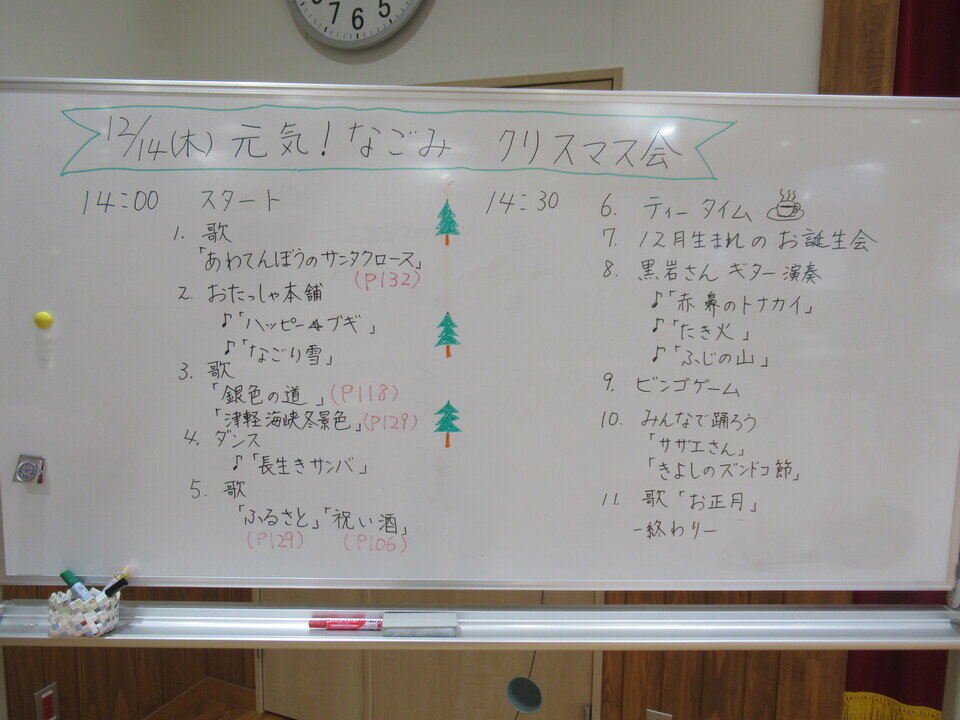 7 6 5
12/14(木) 元気！なごみ クリスマス会
14:00 スタート
1. 歌
「あわてんぼうのサンタクロース」
(P132)
2. おたっしゃ本舗
♪「ハッピー☆ブギ」
♪「なごり雪」
3. 歌
「銀色の道」(P118)
「津軽海峡冬景色」(P129)
4. ダンス
♪「長生きサンバ」
5. 歌
「ふるさと」「祝い酒」
(P129) (P106)
14:30
6. ティータイム
7. 12月生まれのお誕生会
8. 黒岩さん ギター演奏
♪「赤鼻のトナカイ」
♪「たき火」
♪「ふじの山」
9. ビンゴゲーム
10. みんなで踊ろう
「サザエさん」
「きよしのズンドコ節」
11. 歌「お正月」
-終わり-